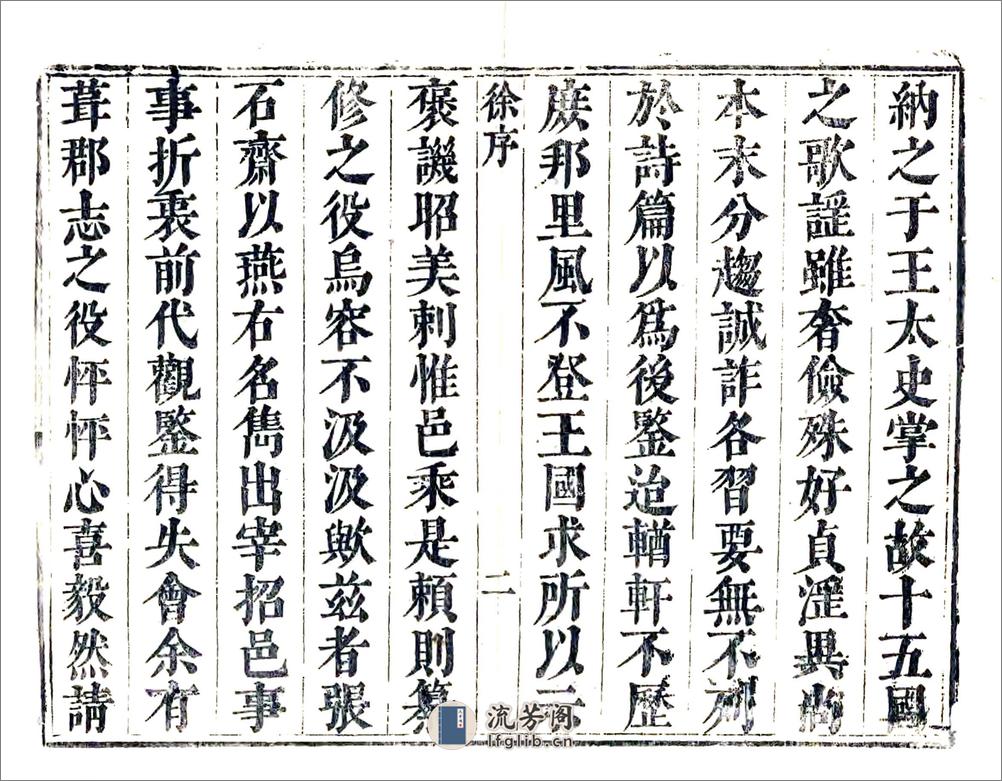 納之于王太史掌之故十五國
之歌謡雖奢儉殊好貞滛異尚
本末分趨誠詐各習要無不列
於詩篇以爲後鑒迨輶軒不歷
庻邦里風不登王國求所以示
徐序
二
褒譏昭美刺惟邑乘是賴則纂
修之役烏容不汲汲歟玆者張
石齋以燕右名雋出宰招邑事
事折衷前代觀鑒得失會余有
葺郡志之役怦怦心喜毅然請
流芳阁
lfglib.cn